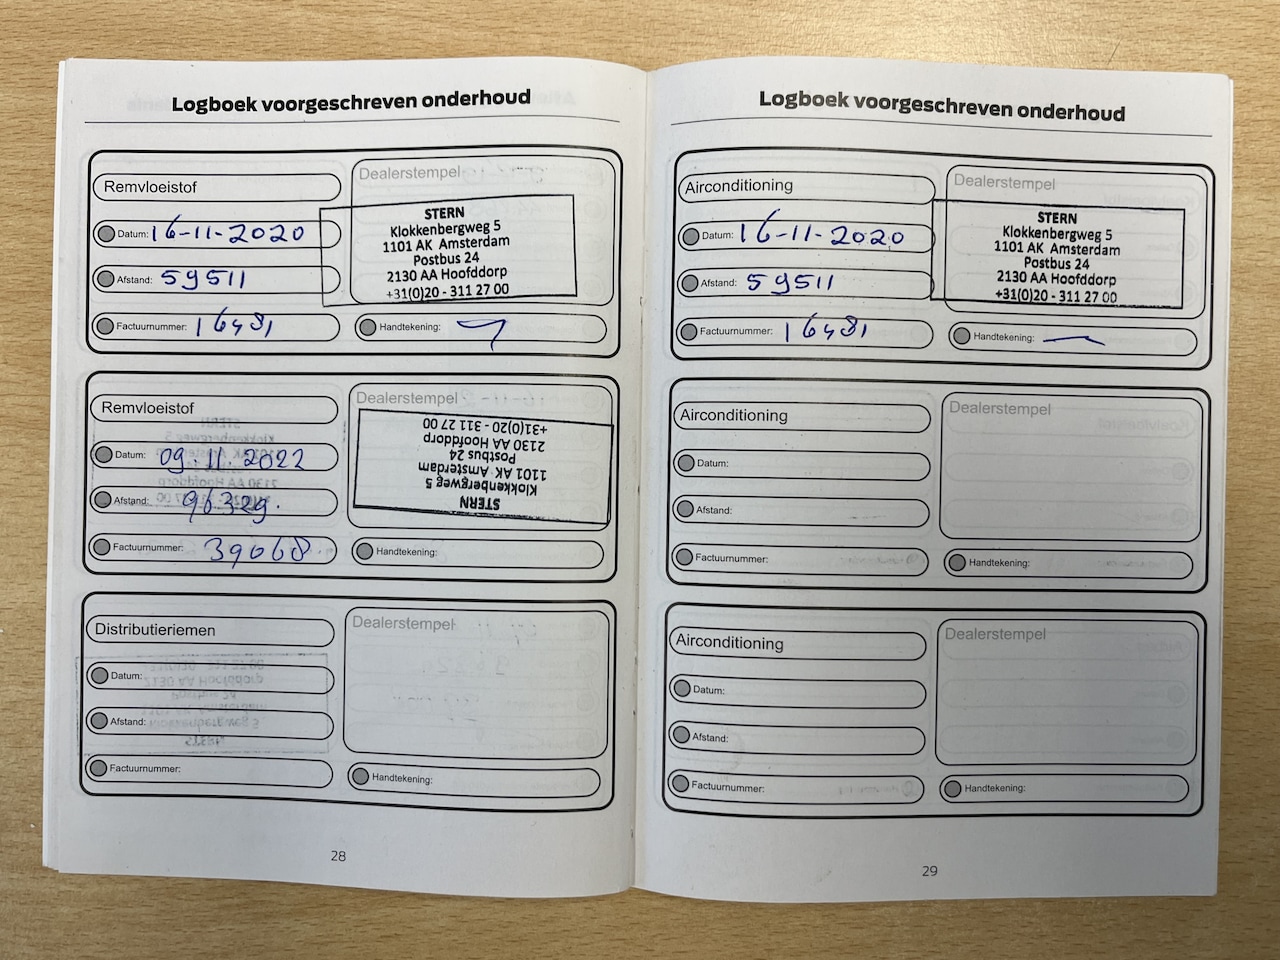 Logboek voorgeschreven onderhoud
Remvloeistof
Dealerstempel
Datum: 16-11-2020
Afstand: 59511
Factuurnummer: 16481
STERN
Klokkenbergweg 5
1101 AK Amsterdam
Postbus 24
2130 AA Hoofddorp
+31(0)20 - 311 27 00
Handtekening:
Remvloeistof
Dealerstempel
Datum: 09.11.2022
Afstand: 96329.
Factuurnummer: 39068
STERN
Klokkenbergweg 5
1101 AK Amsterdam
Postbus 24
2130 AA Hoofddorp
+31(0)20 - 311 27 00
Handtekening:
Distributieriemen
Dealerstempel
Datum:
Afstand:
Factuurnummer:
Handtekening:
28
Logboek voorgeschreven onderhoud
Airconditioning
Dealerstempel
Datum: 16-11-2020
Afstand: 59511
Factuurnummer: 16481
STERN
Klokkenbergweg 5
1101 AK Amsterdam
Postbus 24
2130 AA Hoofddorp
+31(0)20 - 311 27 00
Handtekening:
Airconditioning
Dealerstempel
Datum:
Afstand:
Factuurnummer:
Handtekening:
Airconditioning
Dealerstempel
Datum:
Afstand:
Factuurnummer:
Handtekening:
29